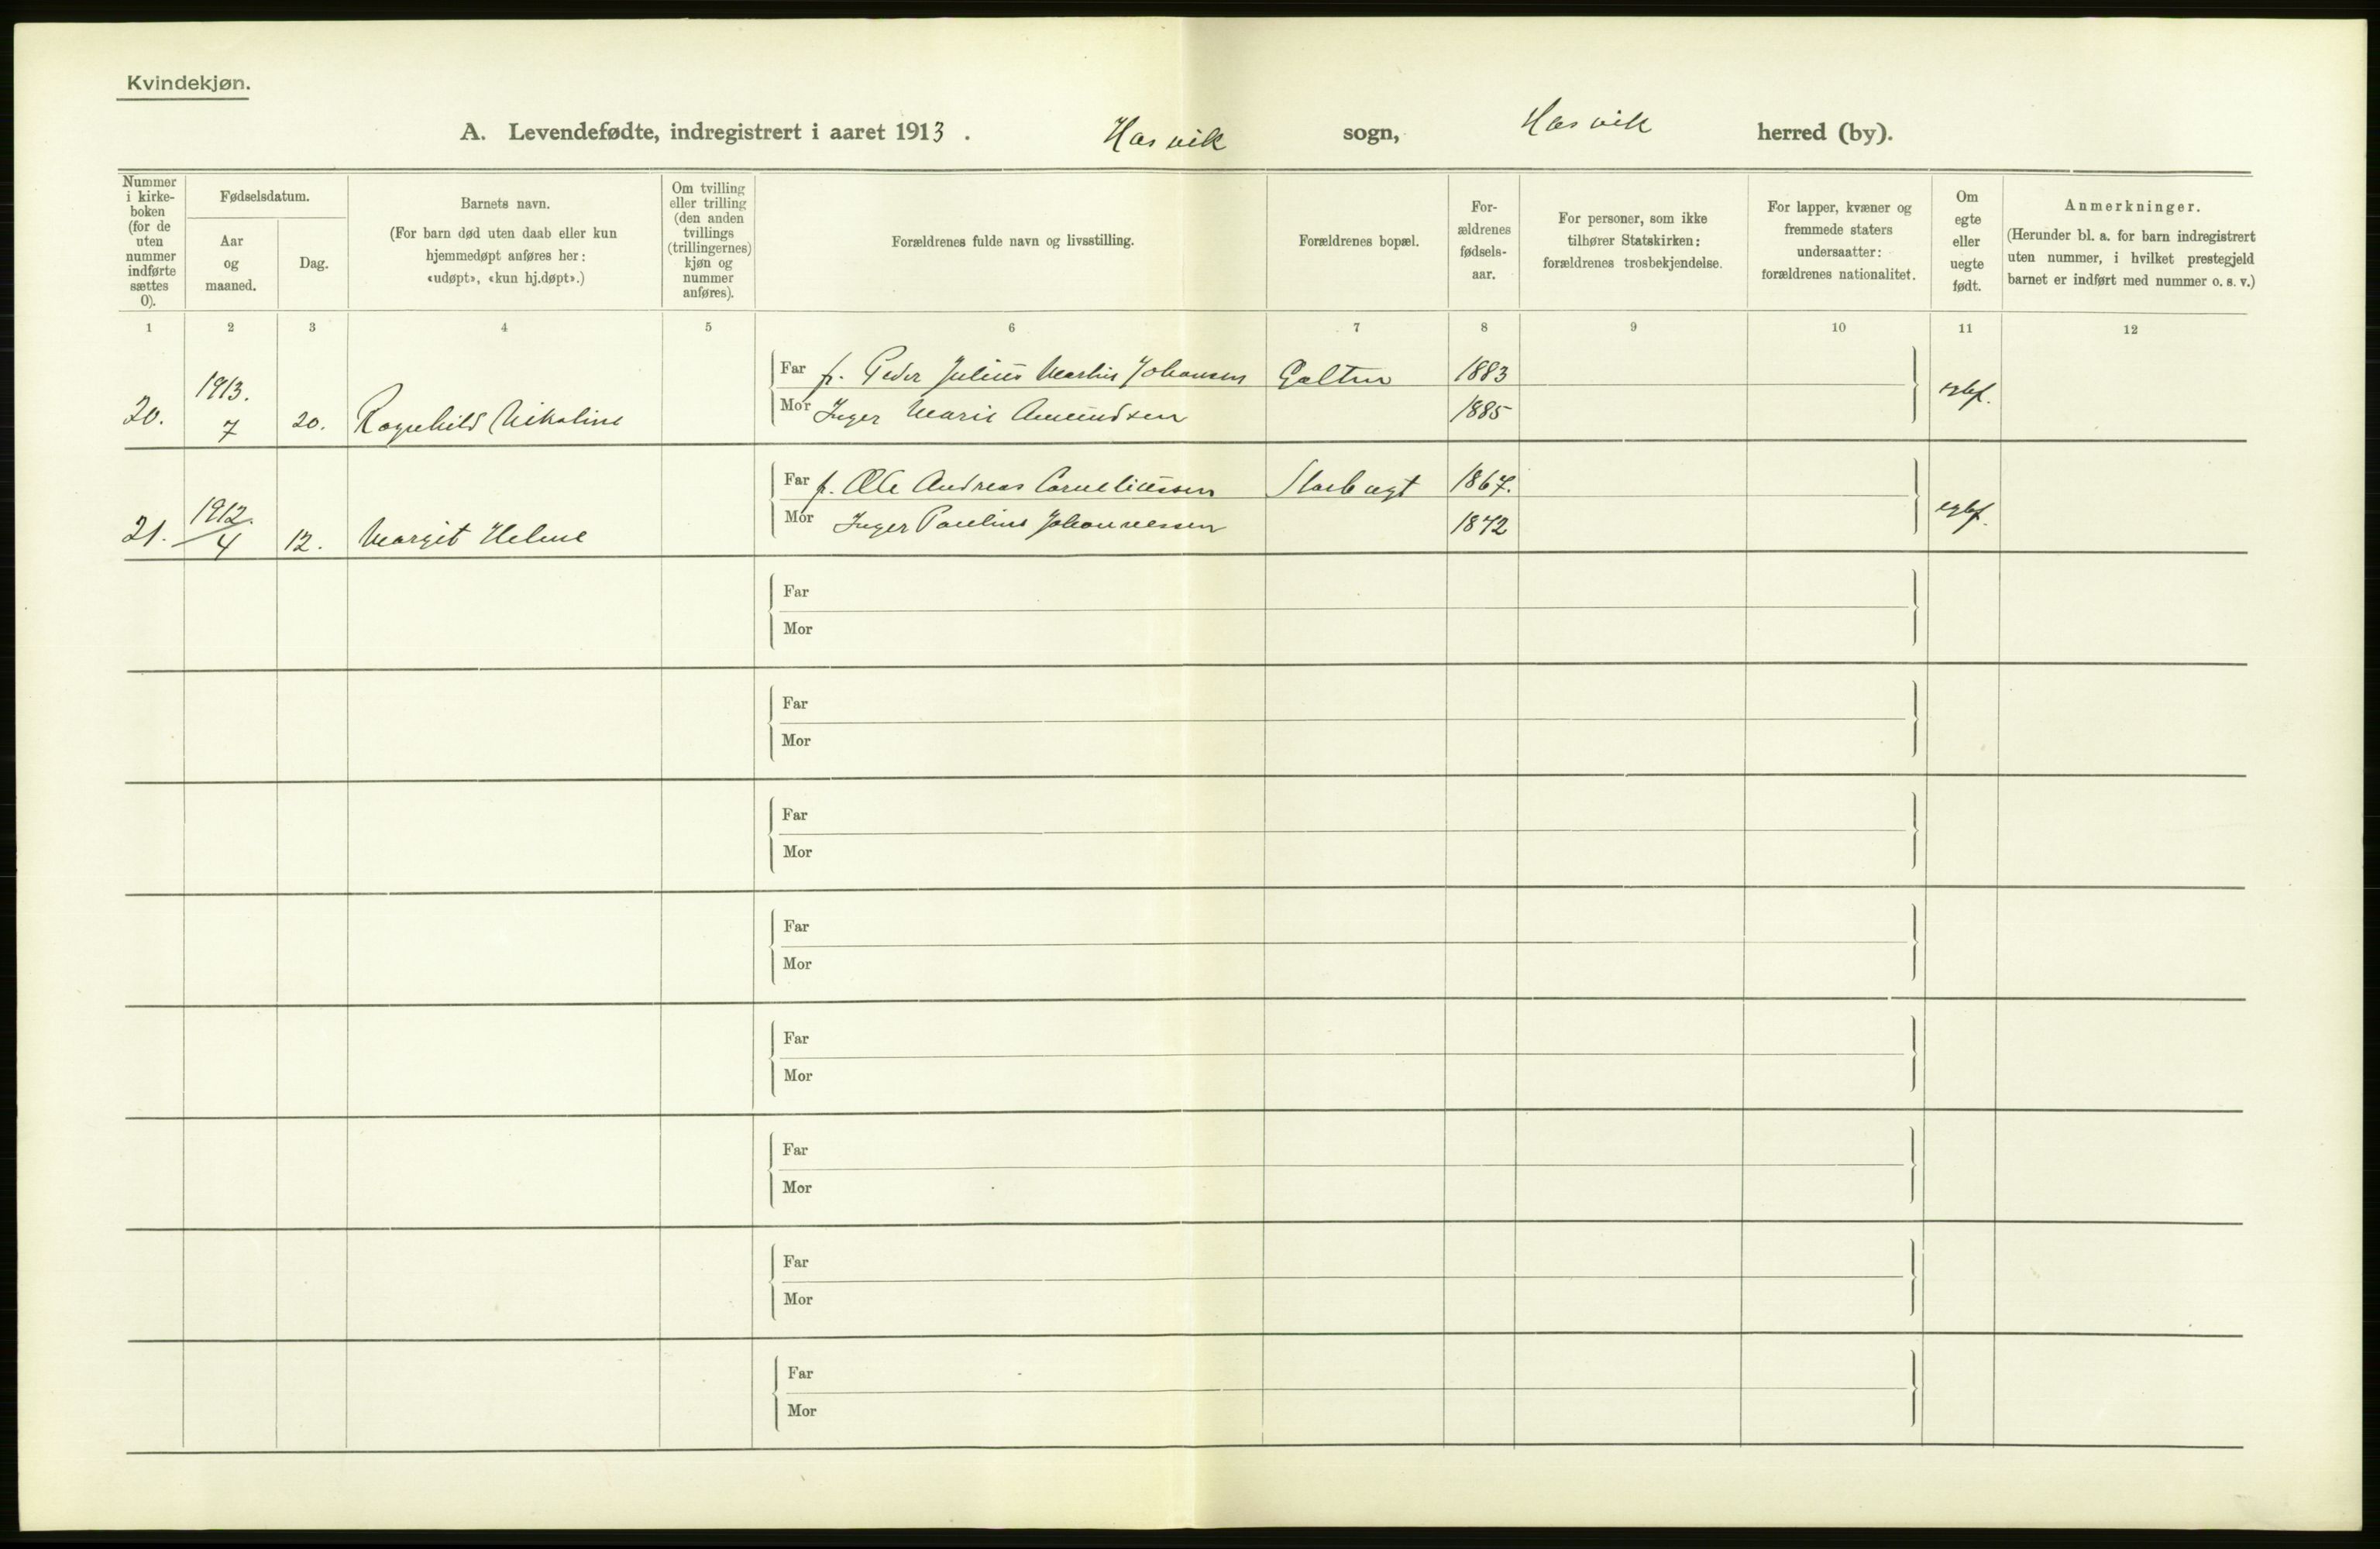 Kvindekjøn.
A. Levendefødte, indregistrert i aaret 1913. Hasvik sogn, Hasvik herred (by).
Nummer i kirke-boken (for de uten nummer indførte sættes 0).
Fødselsdatum.
Aar og maaned.
Dag.
Barnets navn.
(For barn død uten daab eller kun hjemmedøpt anføres her: «udøpt», «kun hj.døpt».)
Om tvilling eller trilling (den anden tvillings (trillingernes) kjøn og nummer anføres).
Forældrenes fulde navn og livsstilling.
Forældrenes bopæl.
For-ældrenes fødsels-aar.
For personer, som ikke tilhører Statskirken: forældrenes trosbekjendelse.
For lapper, kvæner og fremmede staters undersaatter: forældrenes nationalitet.
Om egte eller uegte født.
Anmerkninger.
(Herunder bl. a. for barn indregistrert uten nummer, i hvilket prestegjeld barnet er indført med nummer o. s. v.)
1 2 3 4 5 6 7 8 9 10 11 12
Far f. Peder Julius Martin Johansen Galten 1883
20. 1913. 7 20. Ragnhild Nikoline egtf.
Mor Inger Marie Amundsen 1885
Far f. Ole Andreas Corneliussen 1867.
21. 1912. 4 12. Margit Helene egtf.
Mor Inger Pauline Johannessen 1872
Far
Mor
Far
Mor
Far
Mor
Far
Mor
Far
Mor
Far
Mor
Far
Mor
Far
Mor